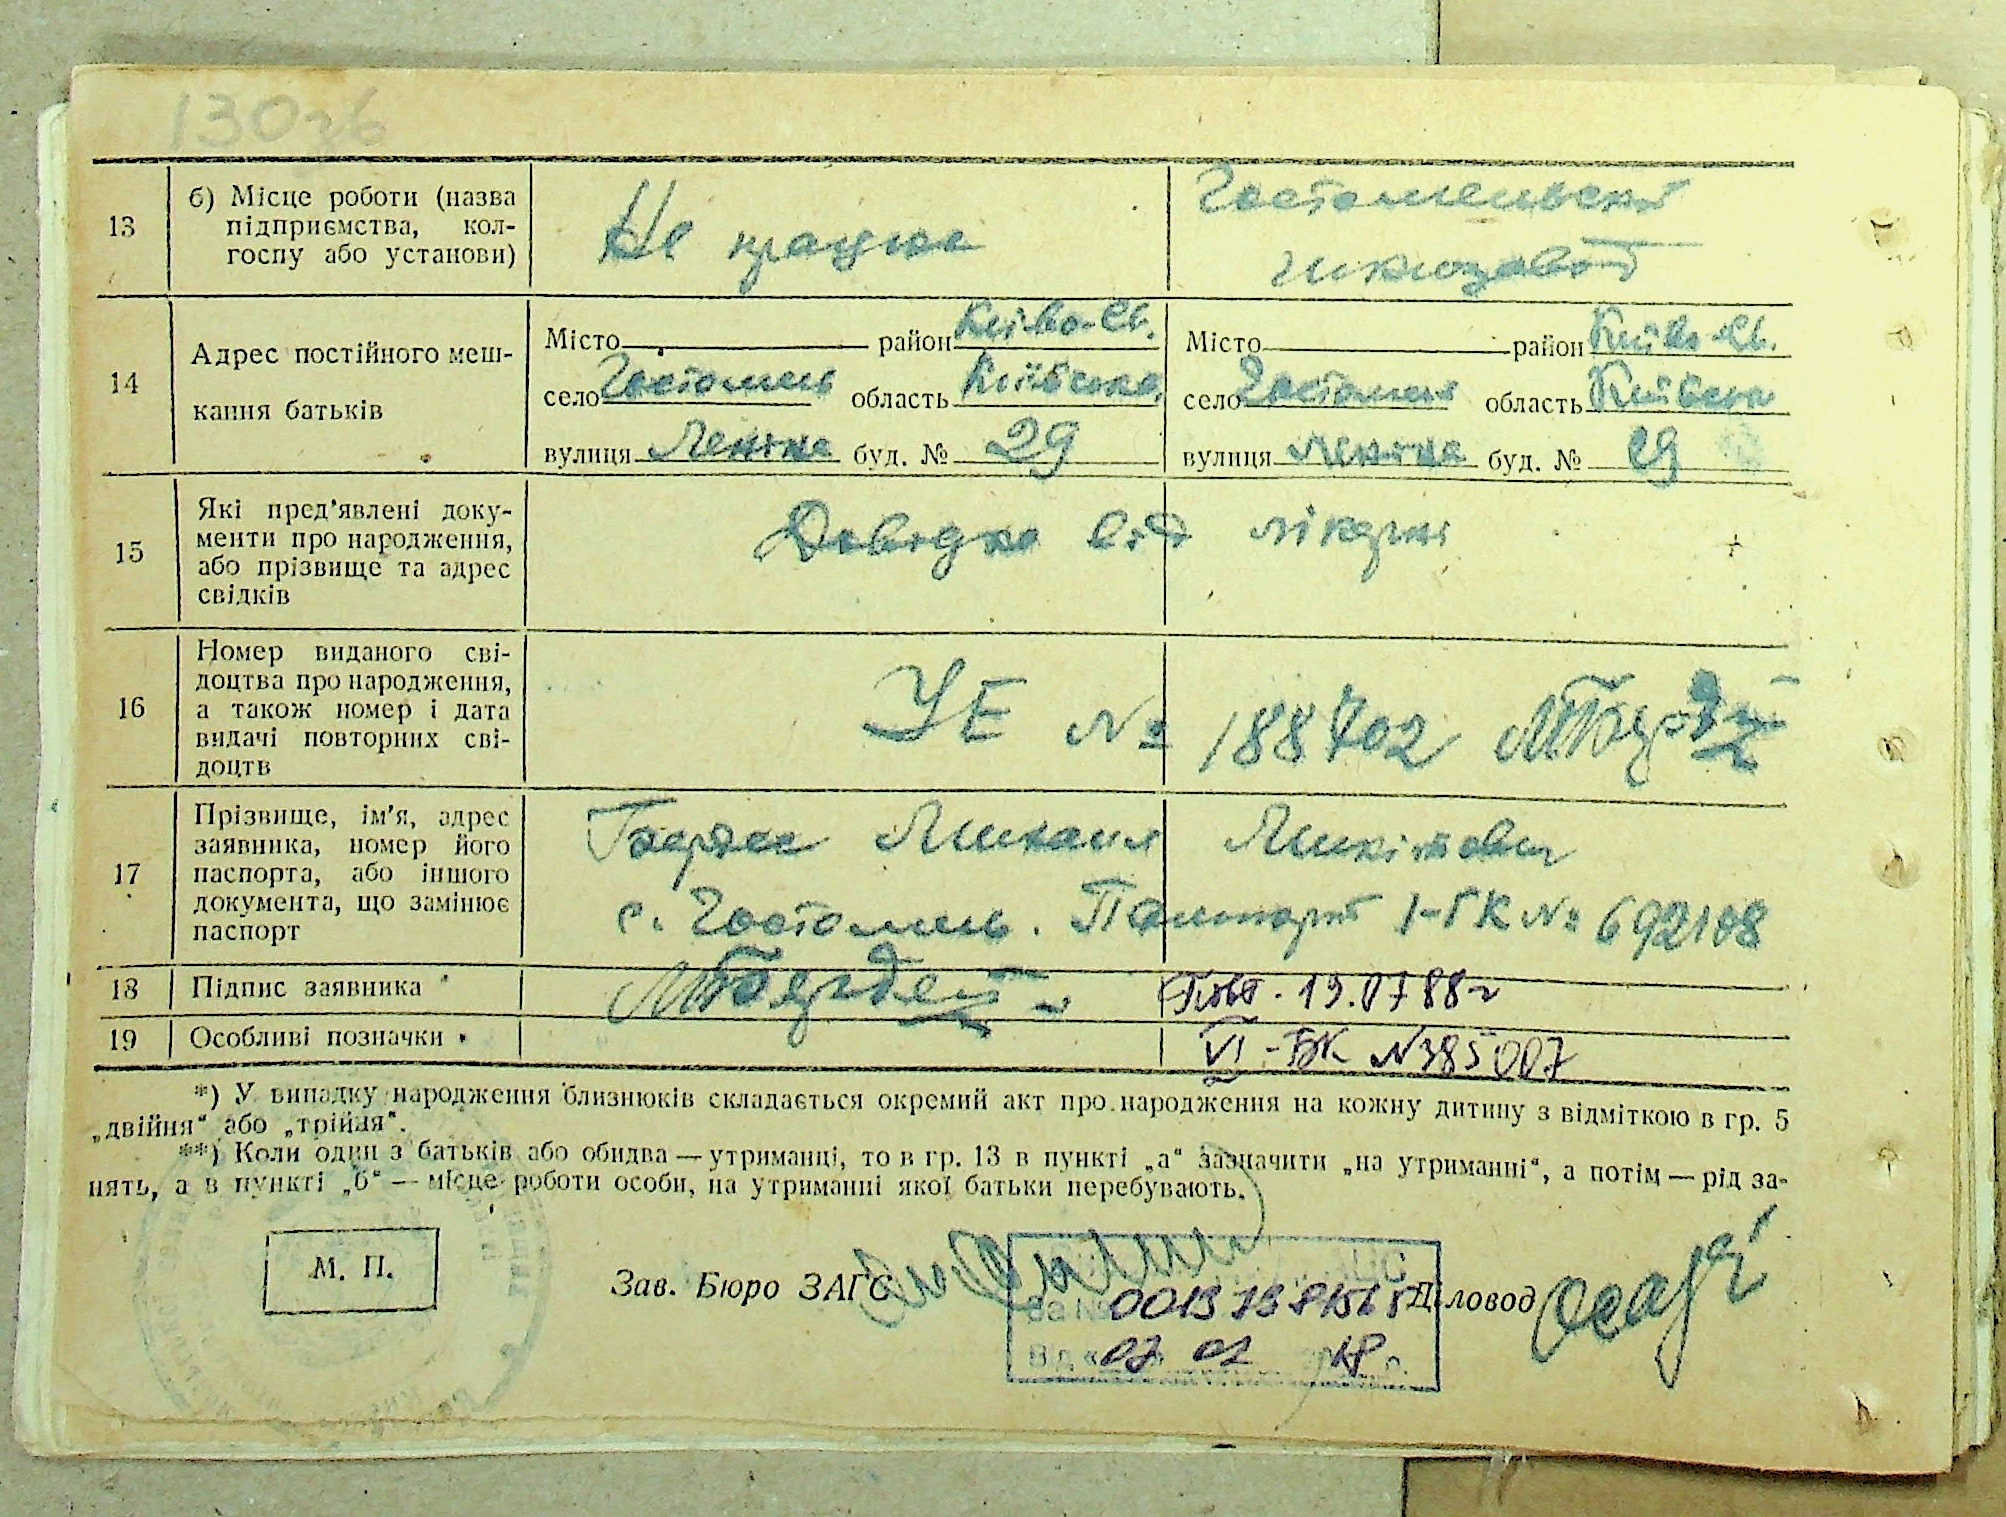 130 зб
13 б) Місце роботи (назва
підприємства, кол-
госпу або установи)
Не працює
Гостомельский
склозавод
14 Адрес постійного меш-
кання батьків
Місто район Київо-Св.
село Гостомель область Київська
вулиця Леніна буд. № 29
Місто район Київо-Св.
село Гостомель область Київська
вулиця Леніна буд. № 29
15 Які пред’явлені доку-
менти про народження,
або прізвище та адрес
свідків
Довідка від лікарні
16 Номер виданого сві-
доцтва про народження,
а також номер і дата
видачі повторних сві-
доцтв
УЕ № 188702
17 Прізвище, ім’я, адрес
заявника, номер його
паспорта, або іншого
документа, що замінює
паспорт
Михаил Микітович
с. Гостомель. Паспорт І-ГК № 692108
18 Підпис заявника
Повт. 19.07 88 г
19 Особливі позначки
VI-БК N 385007
*) У випадку народження близнюків складається окремий акт про народження на кожну дитину з відміткою в гр. 5
„двійня“ або „трійня“.
**) Коли один з батьків або обидва — утриманці, то в гр. 13 в пункті „а“ зазначити „на утриманні“, а потім — рід за-
нять, а в пункті „б“ — місце роботи особи, на утриманні якої батьки перебувають.
М. П.
Зав. Бюро ЗАГС
Діловод
За №
Від « 07 » 02 2018 р.